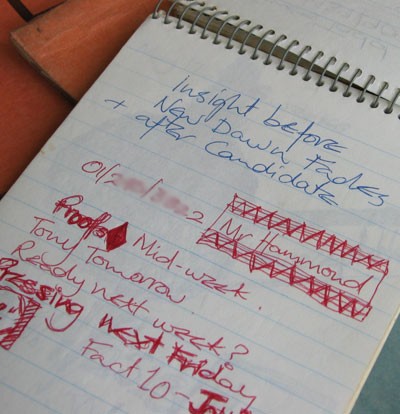 Insight before
New Dawn Fades
+ after Candidate
01/
2
Mr Hammond
Proofs Mid-week.
Tony Tomorrow
Ready next week?
Pressing next Friday
Fact 10 -